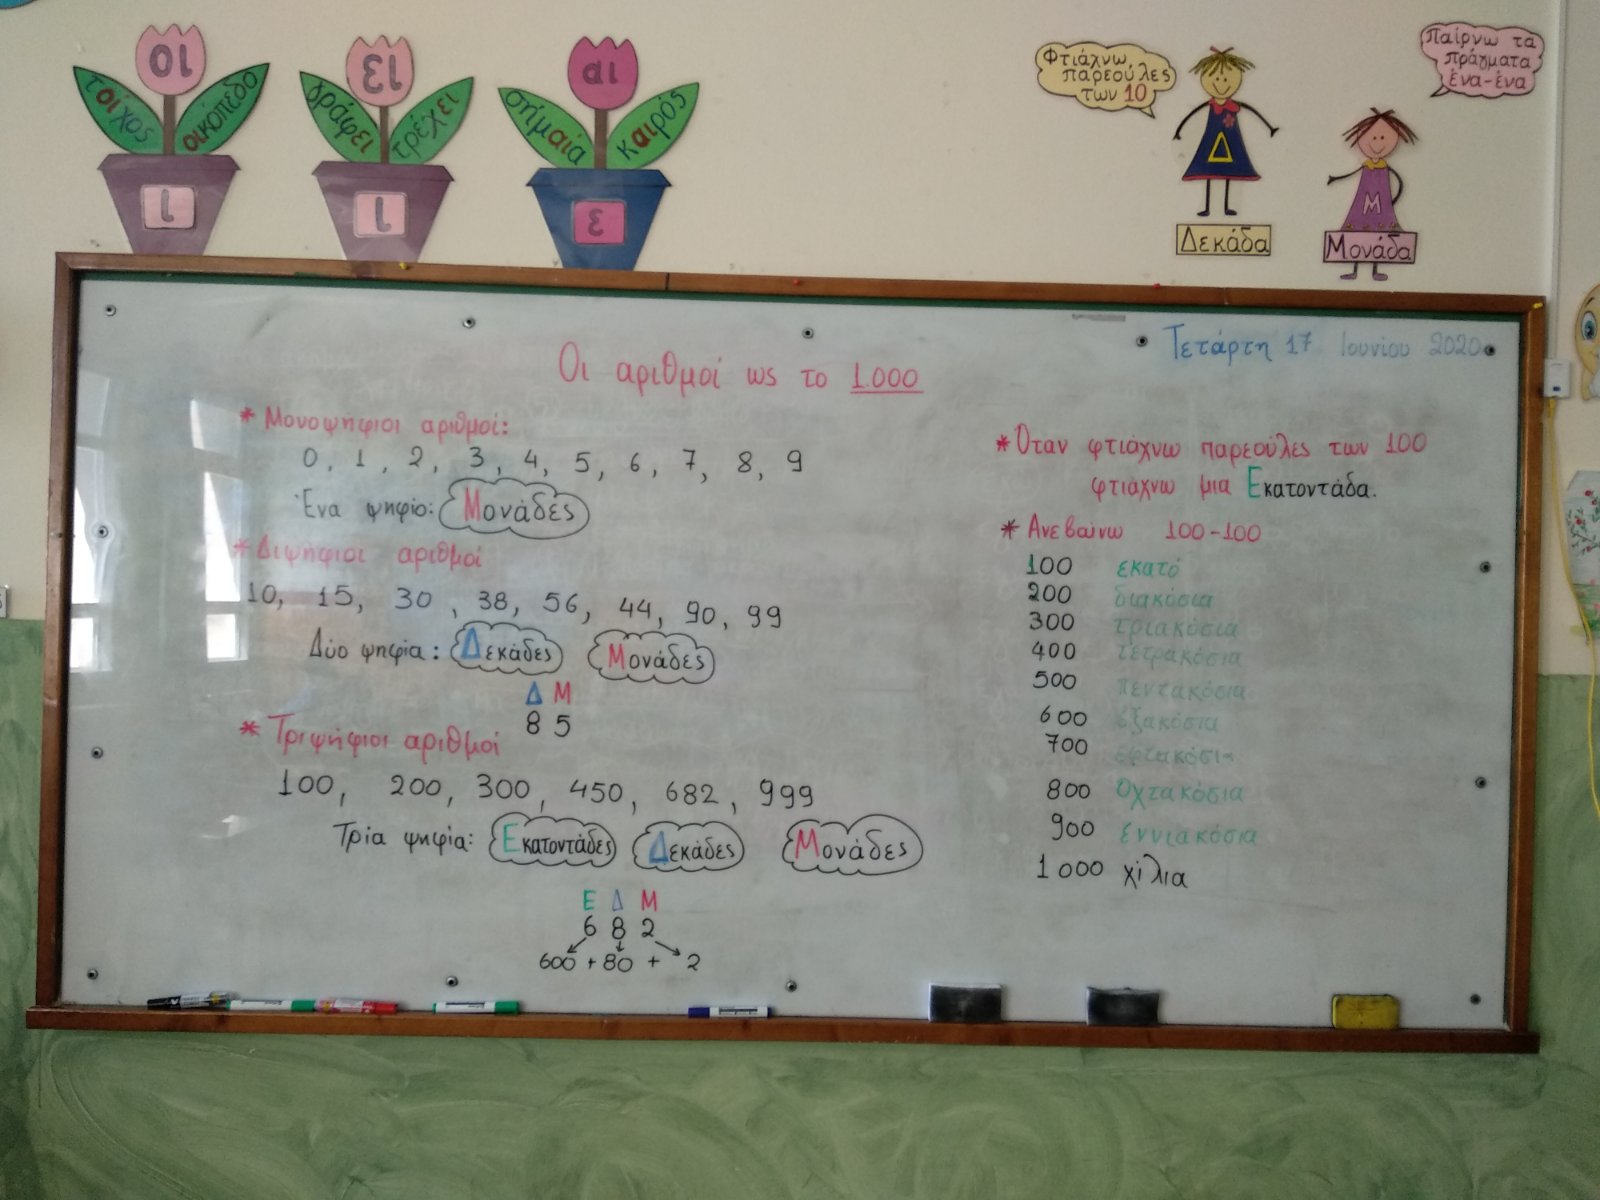 οι
τοίχος
οικόπεδο
ι
ει
γράφει
τρέχει
ι
αι
σημαία
καιρός
ε
Φτιάχνω
παρεούλες
των 10
Δ
Δεκάδα
Παίρνω τα
πράγματα
ένα-ένα
Μ
Μονάδα
Τετάρτη 17 Ιουνίου 2020
Οι αριθμοί ως το 1.000
* Μονοψήφιοι αριθμοί:
0, 1, 2, 3, 4, 5, 6, 7, 8, 9
Ένα ψηφίο: Μονάδες
* Διψήφιοι αριθμοί
10, 15, 30, 38, 56, 44, 90, 99
Δύο ψηφία: Δεκάδες Μονάδες
Δ Μ
8 5
* Τριψήφιοι αριθμοί
100, 200, 300, 450, 682, 999
Τρία ψηφία: Εκατοντάδες Δεκάδες Μονάδες
Ε Δ Μ
6 8 2
600 + 80 + 2
* Όταν φτιάχνω παρεούλες των 100
φτιάχνω μια Εκατοντάδα.
* Ανεβαίνω 100-100
100 εκατό
200 διακόσια
300 τριακόσια
400 τετρακόσια
500 πεντακόσια
600 εξακόσια
700 εφτακόσια
800 οχτακόσια
900 εννιακόσια
1000 χίλια